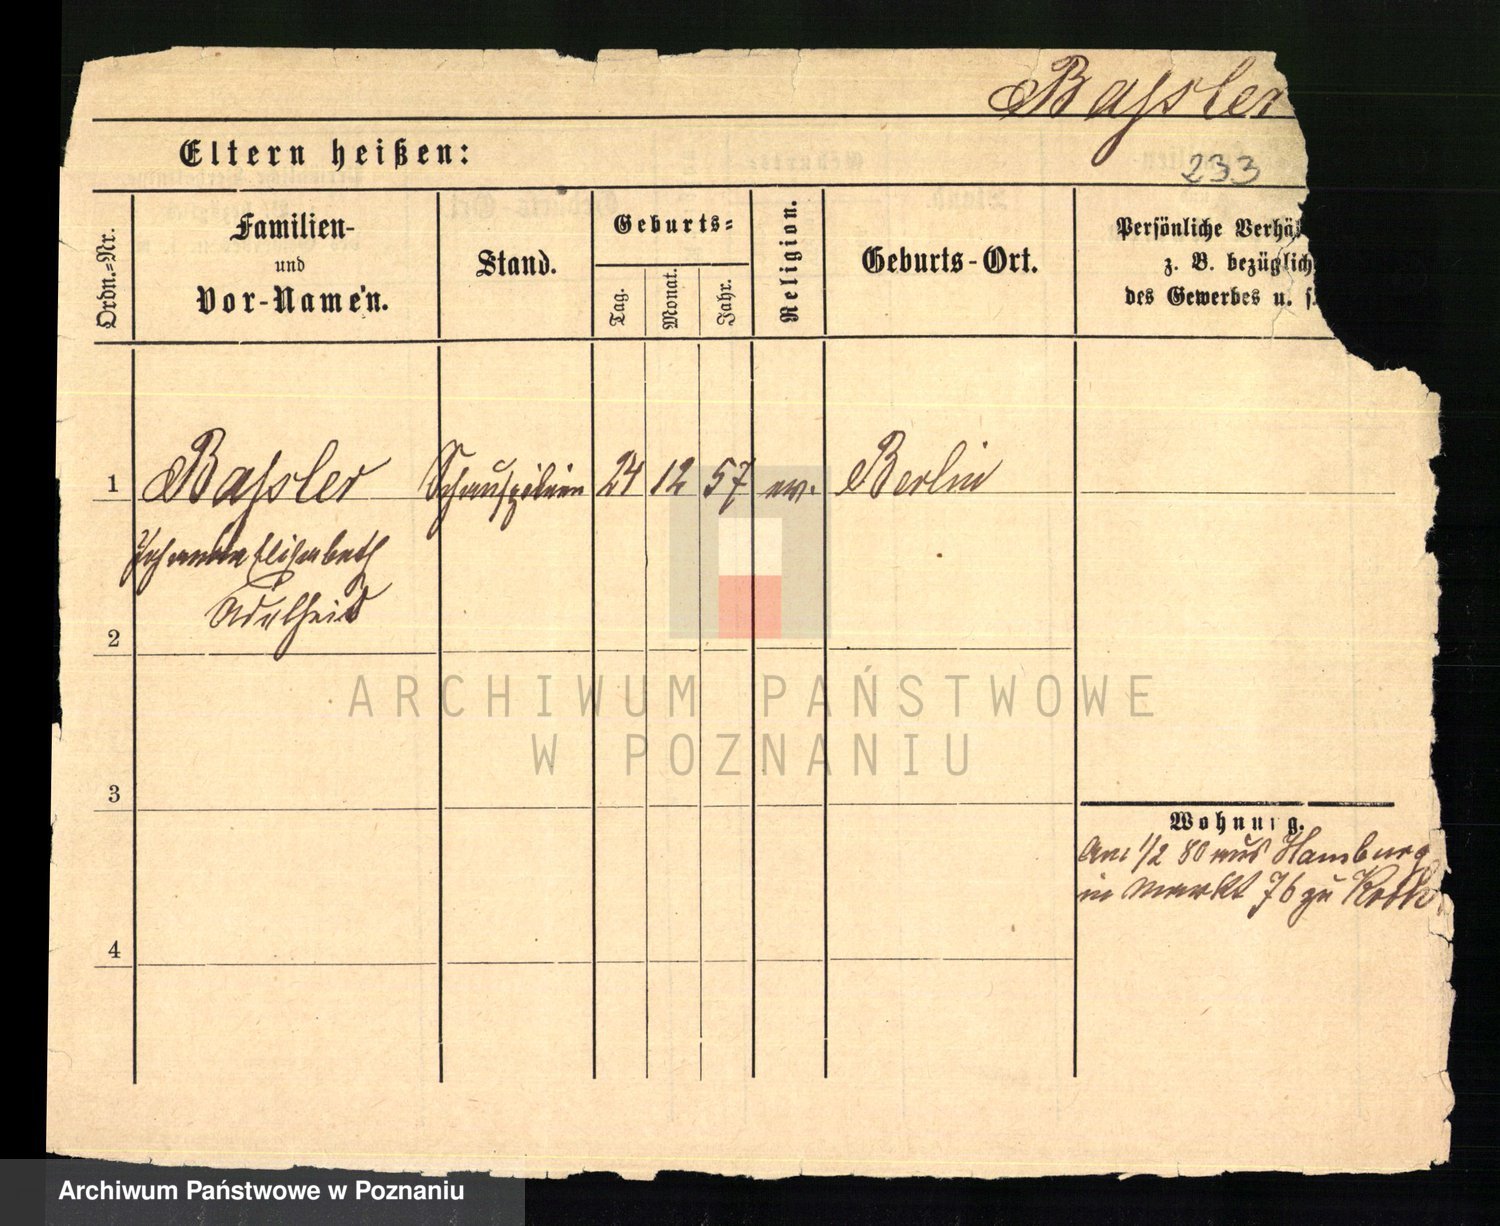 Bassler
Eltern heißen:
233
Ordn.=Nr.
Familien-
und
Vor-Namen.
Stand.
Geburts=
Tag.
Monat.
Jahr.
Religion.
Geburts-Ort.
Persönliche Verhä
z. B. bezüglich
des Gewerbes u. s.
1 Bassler Schauspielerin 24 12 57 ev. Berlin
Johanna Elisabeth
Adelheid
2
3
Wohnung.
Am 1/2 80 aus Hamburg
in Markt 76 zu
4
ARCHIWUM PAŃSTWOWE
W POZNANIU
Archiwum Państwowe w Poznaniu